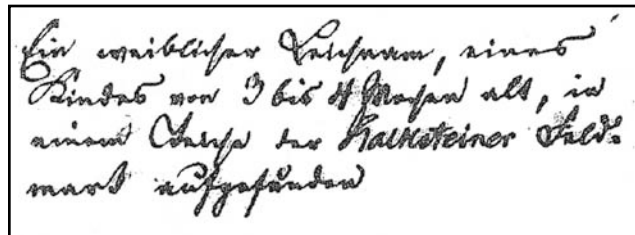 Ein weiblicher Leichnam, eines
Kindes von 3 bis 4 Wochen alt, in
einem Teiche der Kalksteiner Feld-
mark aufgefunden